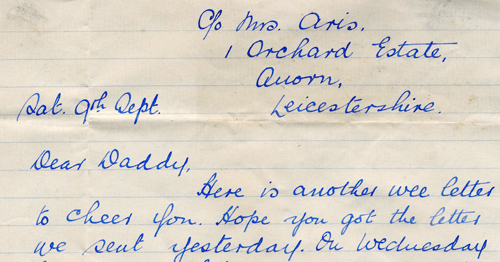 c/o Mrs. Aris.
1 Orchard Estate,
Quorn,
Leicestershire.
Sat. 9th Sept.
Dear Daddy,
Here is another wee letter
to cheer you. Hope you got the letter
we sent yesterday. On Wednesday